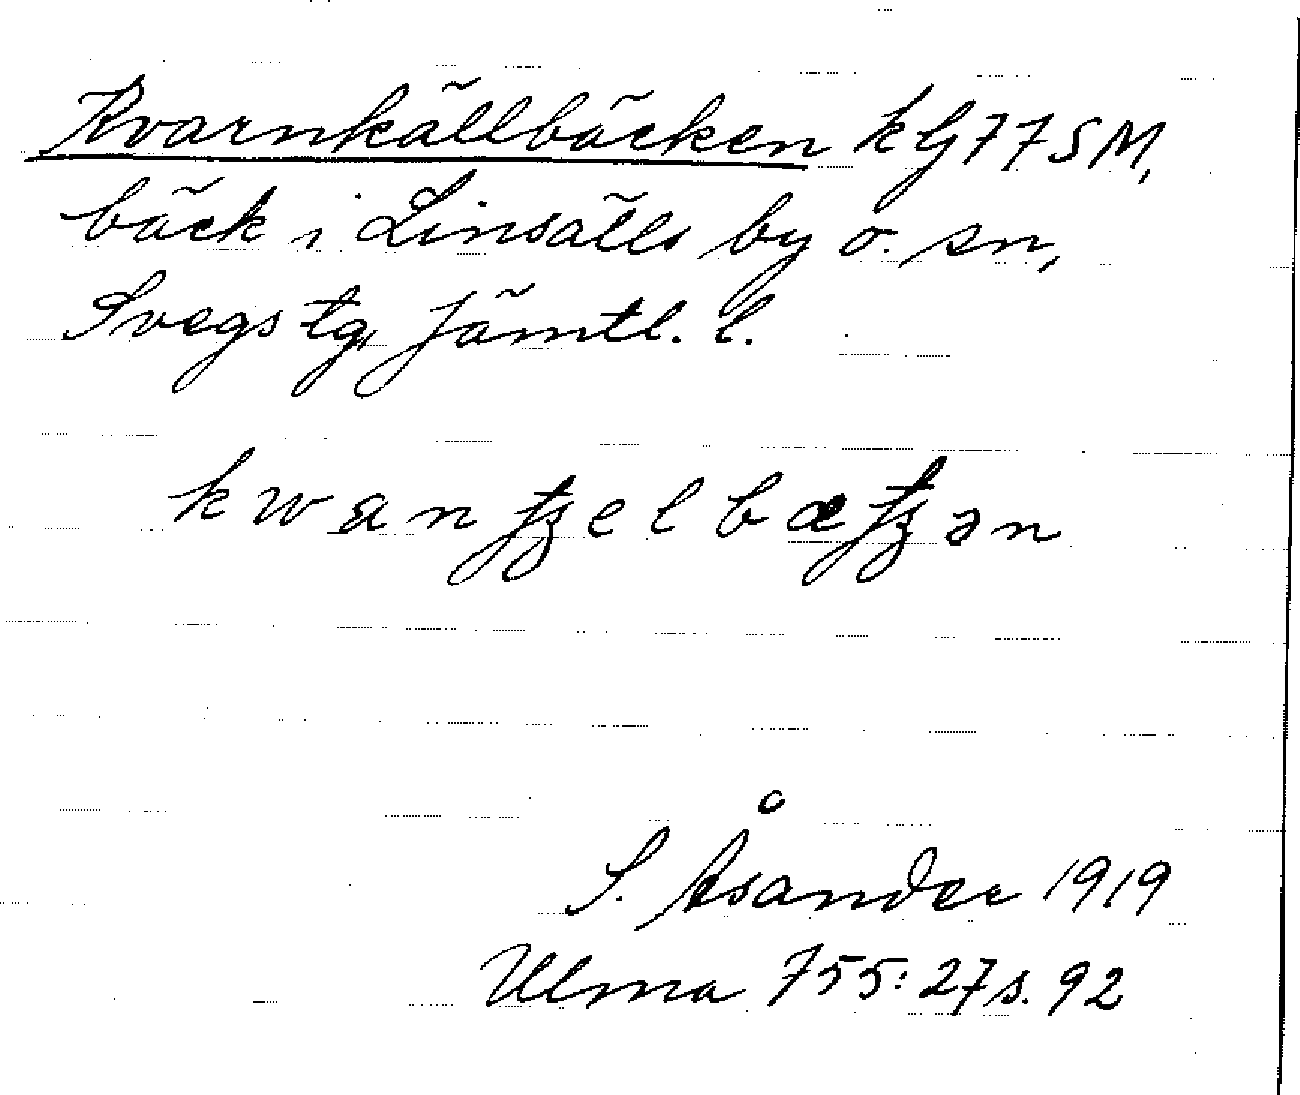 Kvarnkällbäcken kG 77 SM,
bäck i Linsälls by o. sn,
Svegs tg, Jämtl. l.
kwanʃʒelbæʃʒən
S. Åsander 1919
Ulma 755:27 s. 92